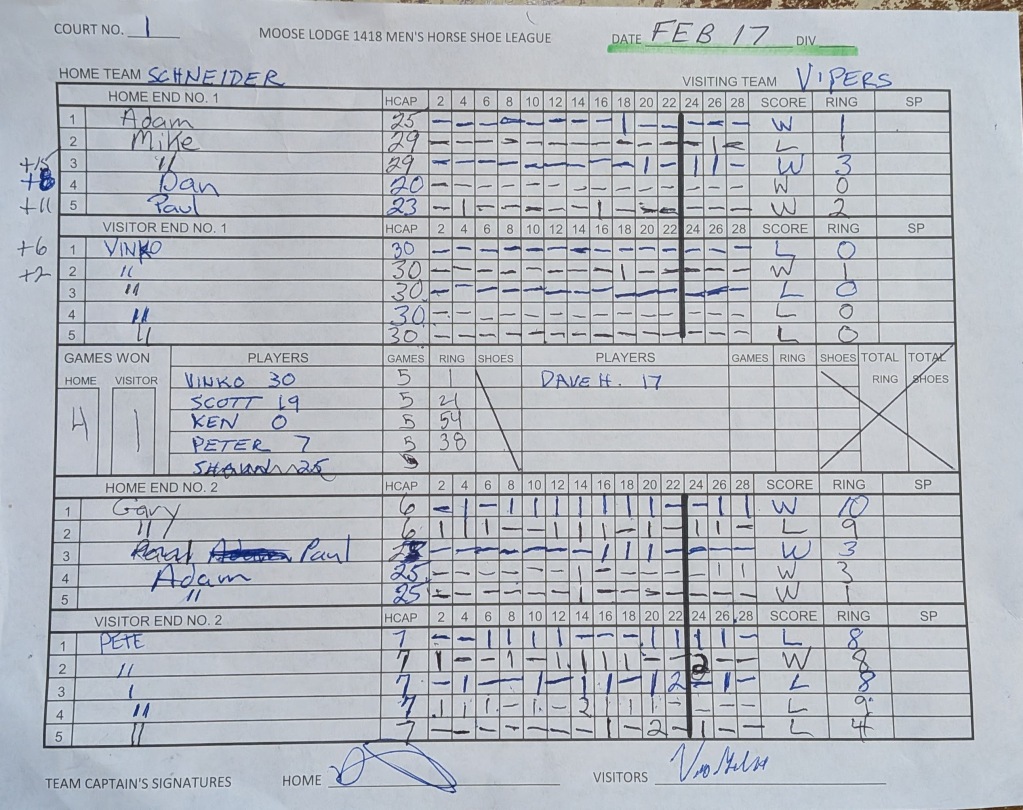 COURT NO. 1 MOOSE LODGE 1418 MEN'S HORSE SHOE LEAGUE DATE FEB 17 DIV
HOME TEAM SCHNEIDER VISITING TEAM VIPERS
HOME END NO. 1 HCAP 2 4 6 8 10 12 14 16 18 20 22 24 26 28 SCORE RING SP
1 Adam 25 - - - - - - - - 1 - - - - - W 1
2 Mike 29 - - - - - - - - - - - - 1 - L 1
+15 3 " 29 - - - - - - - - - 1 - 1 1 - W 3
+8 4 Dan 20 - - - - - - - - - - - - - - W 0
+11 5 Paul 23 - 1 - - - - - 1 - - - - - - W 2
VISITOR END NO. 1 HCAP 2 4 6 8 10 12 14 16 18 20 22 24 26 28 SCORE RING SP
+6 1 VINKO 30 - - - - - - - - - - - - - - L 0
+2 2 " 30 - - - - - - - - 1 - - - - - W 1
3 " 30 - - - - - - - - - - - - - - L 0
4 " 30 - - - - - - - - - - - - - - L 0
5 " 30 - - - - - - - - - - - - - - L 0
GAMES WON PLAYERS GAMES RING SHOES PLAYERS GAMES RING SHOES TOTAL RING TOTAL SHOES
HOME VISITOR
4 1
VINKO 30 5 1 DAVE H. 17
SCOTT 19 5 21
KEN 0 5 54
PETER 7 5 38
SHAWN 25
HOME END NO. 2 HCAP 2 4 6 8 10 12 14 16 18 20 22 24 26 28 SCORE RING SP
1 Gary 6 - 1 - 1 1 1 1 1 1 1 - - 1 1 W 10
2 " 6 1 1 1 - - 1 1 1 - 1 - 1 1 - L 9
3 Paul - - - - - - - 1 1 1 - - - - W 3
4 Adam 25 - - - - - - 1 - - - - - 1 1 W 3
5 " 25 - - - - - - 1 - - - - - - - W 1
VISITOR END NO. 2 HCAP 2 4 6 8 10 12 14 16 18 20 22 24 26 28 SCORE RING SP
1 PETE 7 - - 1 1 1 1 - - - 1 1 1 1 - L 8
2 " 7 1 - - 1 - 1 1 1 1 - - 2 - - W 8
3 7 - 1 - - 1 - 1 1 - 1 2 - 1 - L 8
4 " 7 1 1 1 - 1 - 2 L 9
5 " 7 - - - - - - - 1 - 2 - 1 - - L 4
TEAM CAPTAIN'S SIGNATURES HOME VISITORS